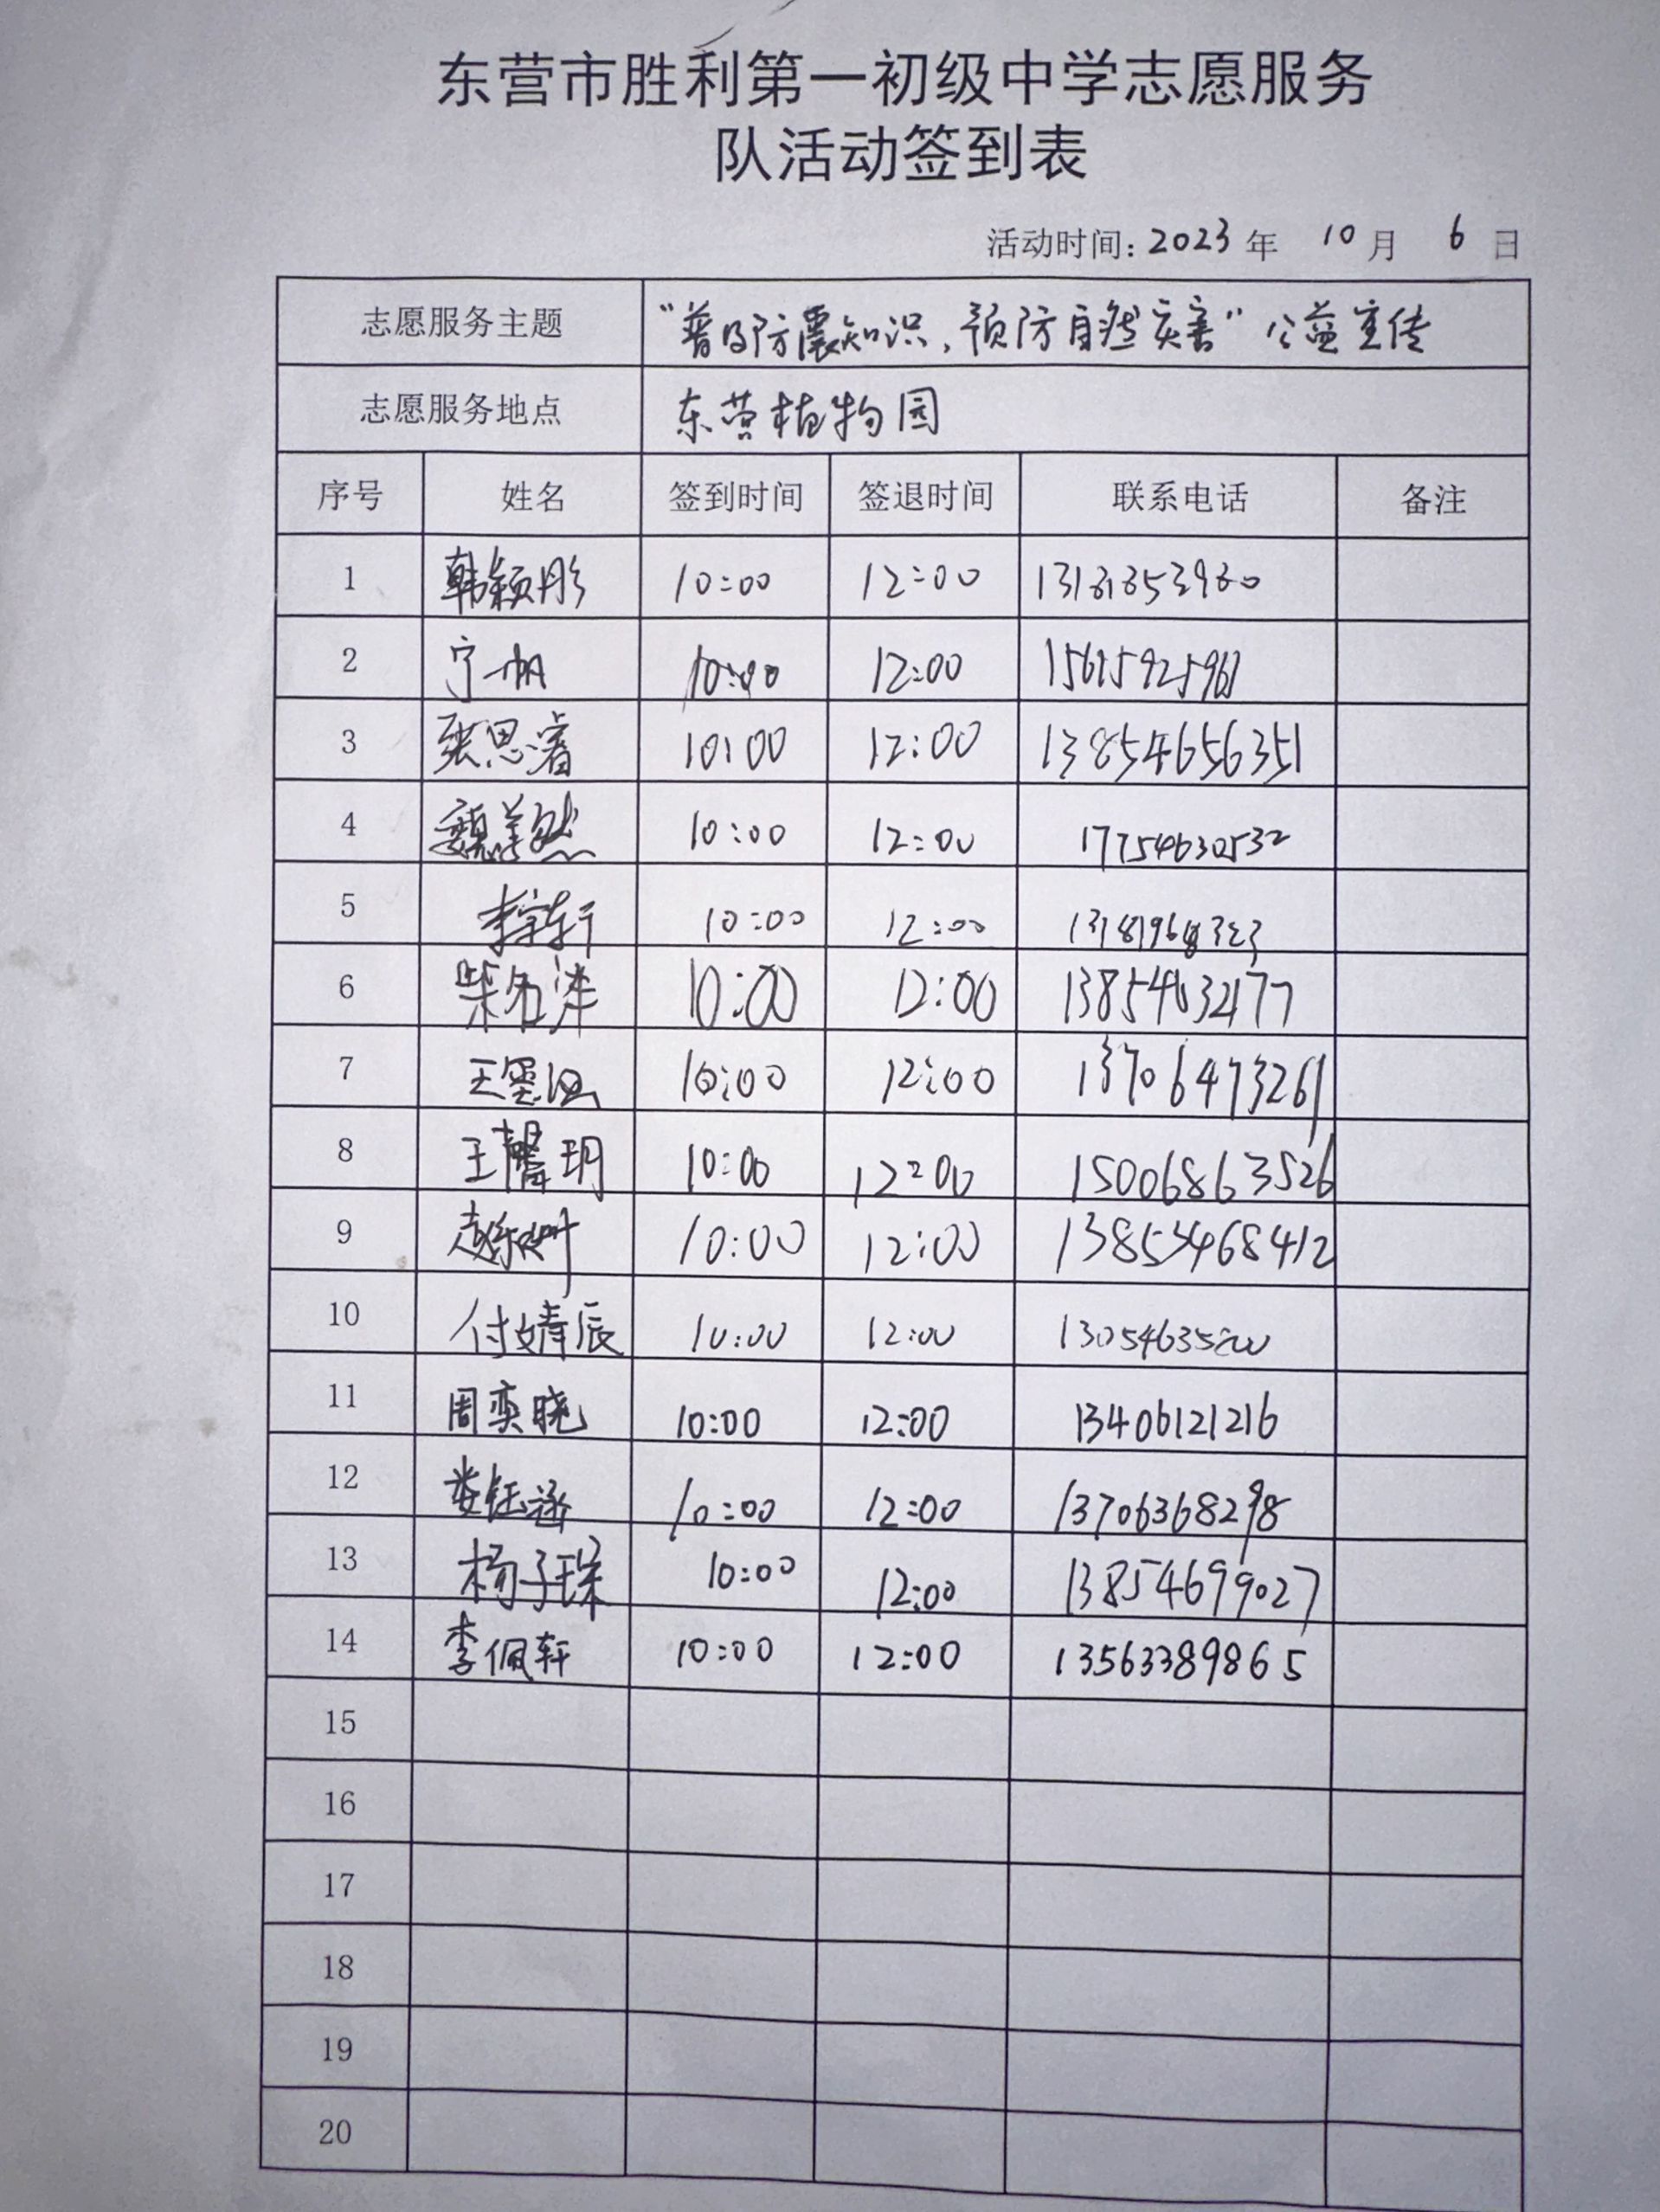 东营市胜利第一初级中学志愿服务
队活动签到表
活动时间: 2023 年 10 月 6 日
志愿服务主题 "普及防震知识,预防自然灾害"公益宣传
志愿服务地点 东营植物园
序号 姓名 签到时间 签退时间 联系电话 备注
1 韩颖彤 10:00 12:00
2 宁一帆 10:00 12:00
3 张思睿 10:00 12:00 13854656351
4 魏美然 10:00 12:00 17754630532
5 李宇轩 10:00 12:00
6 柴名泽 10:00 12:00
7 王墨涵 10:00 12:00 13706473261
8 王馨玥 10:00 12:00 15006863526
9 10:00 12:00 13853468412
10 付婧辰 10:00 12:00
11 周奕晓 10:00 12:00 13406121216
12 娄钰涵 10:00 12:00 13706368298
13 杨子琛 10:00 12:00 13854699027
14 李佩轩 10:00 12:00 13563389865
15
16
17
18
19
20